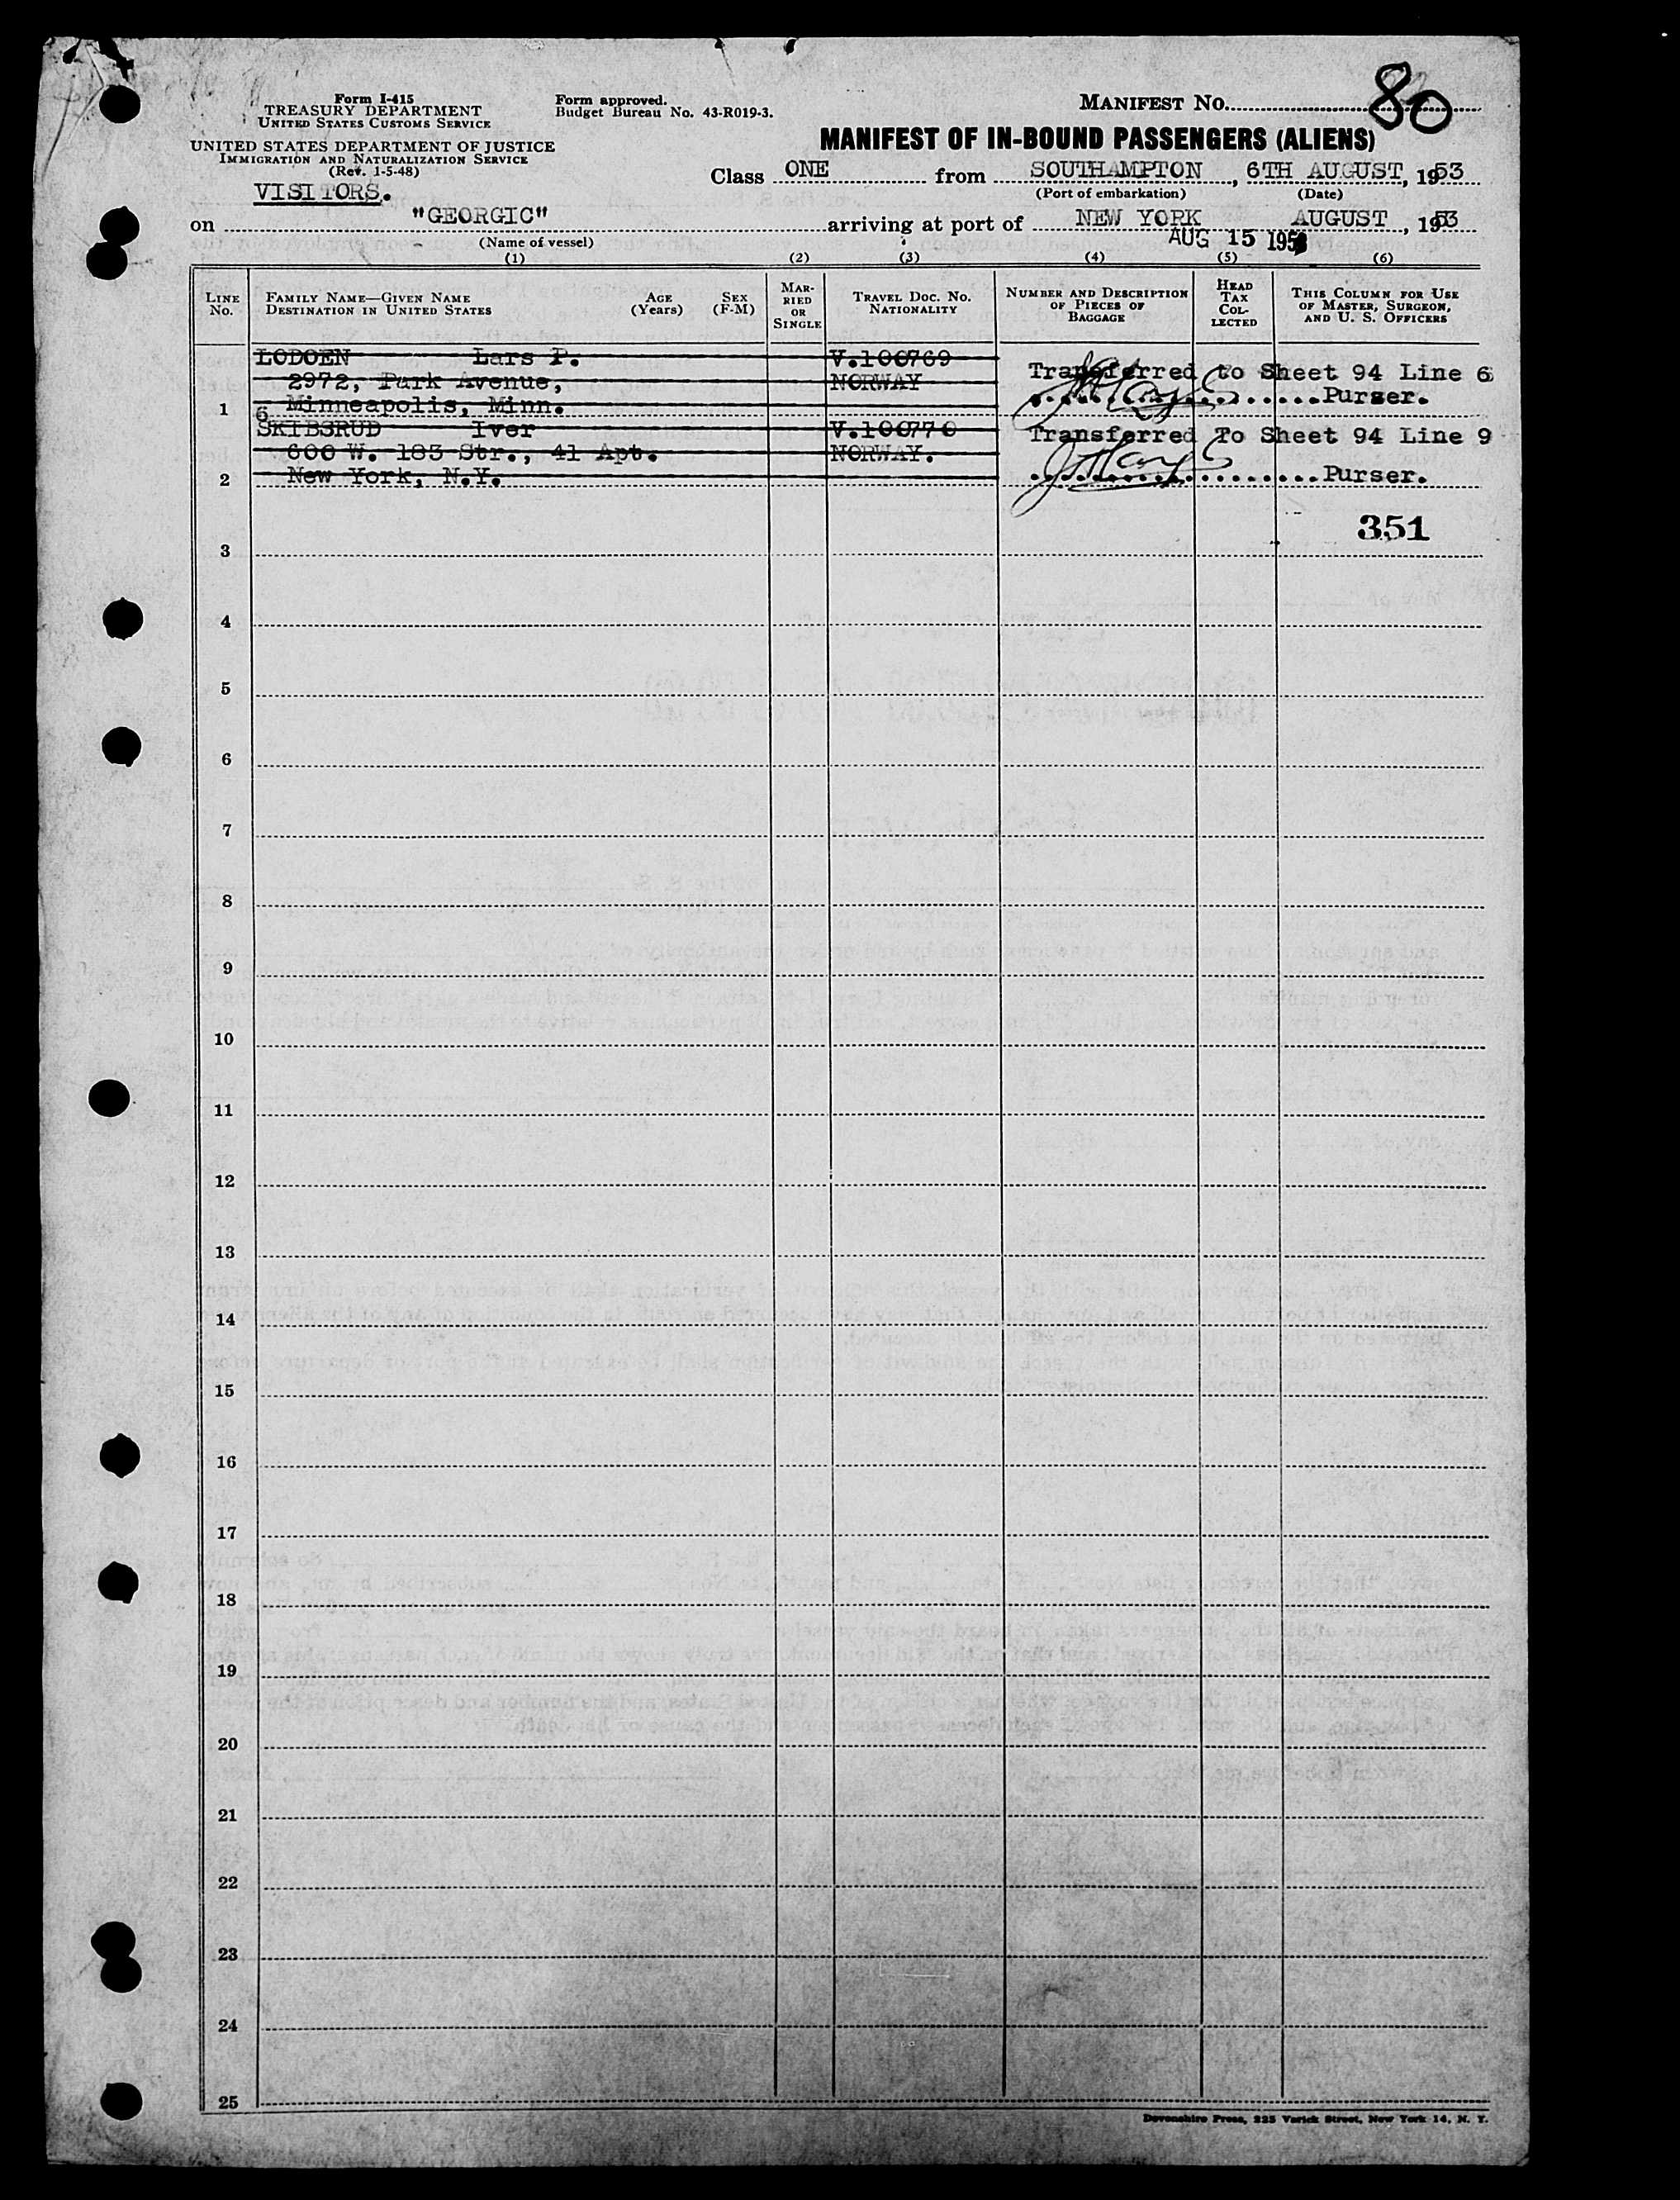 Form I-415
TREASURY DEPARTMENT
UNITED STATES CUSTOMS SERVICE
UNITED STATES DEPARTMENT OF JUSTICE
IMMIGRATION AND NATURALIZATION SERVICE
(Rev. 1-5-48)
Form approved.
Budget Bureau No. 43-R019-3.
MANIFEST NO. 80
MANIFEST OF IN-BOUND PASSENGERS (ALIENS)
Class ONE from SOUTHAMPTON, 6TH AUGUST, 1953
(Port of embarkation) (Date)
VISITORS.
on "GEORGIC" arriving at port of NEW YORK AUGUST, 1953
(Name of vessel) AUG 15 1953
(1) (2) (3) (4) (5) (6)
LINE No.
FAMILY NAME—GIVEN NAME
DESTINATION IN UNITED STATES
AGE (Years)
SEX (F-M)
MARRIED OR SINGLE
TRAVEL DOC. NO.
NATIONALITY
NUMBER AND DESCRIPTION OF PIECES OF BAGGAGE
HEAD TAX COLLECTED
THIS COLUMN FOR USE OF MASTER, SURGEON, AND U. S. OFFICERS
LODOEN Lars P. V.100769
2972, Park Avenue, NORWAY Transferred to Sheet 94 Line 6
1 6 Minneapolis, Minn. Purser.
SKIBSRUD Iver V.100770 Transferred To Sheet 94 Line 9
600 W. 183 Str., 41 Apt. NORWAY.
2 New York, N.Y. Purser.
351
3
4
5
6
7
8
9
10
11
12
13
14
15
16
17
18
19
20
21
22
23
24
25
Devonshire Press, 225 Varick Street, New York 14, N. Y.